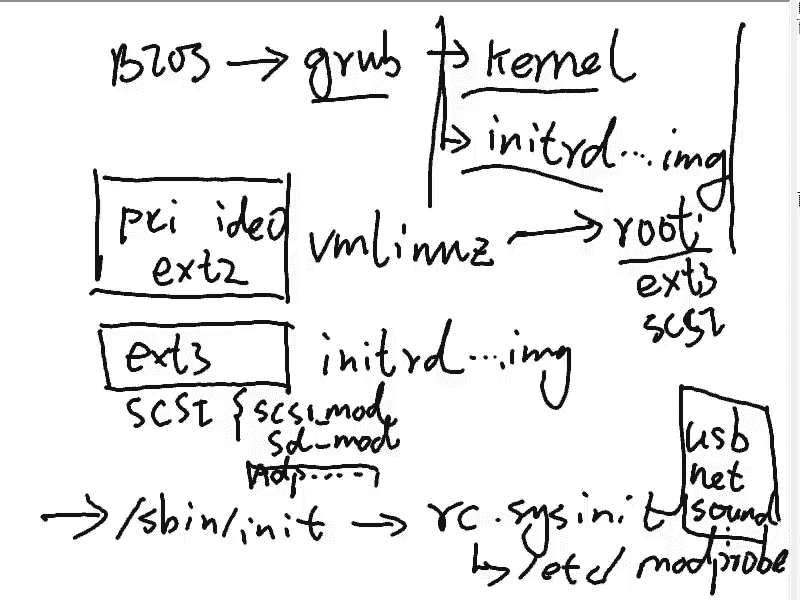 BIOS → grub → kernel
→ initrd...img
pci ide0
ext2
vmlinuz → root:
ext3
scsi
ext3
initrd...img
SCSI { scsi_mod
sd_mod
usb
net
sound
→ /sbin/init → rc.sysinit
↳ /etc/ modprobe